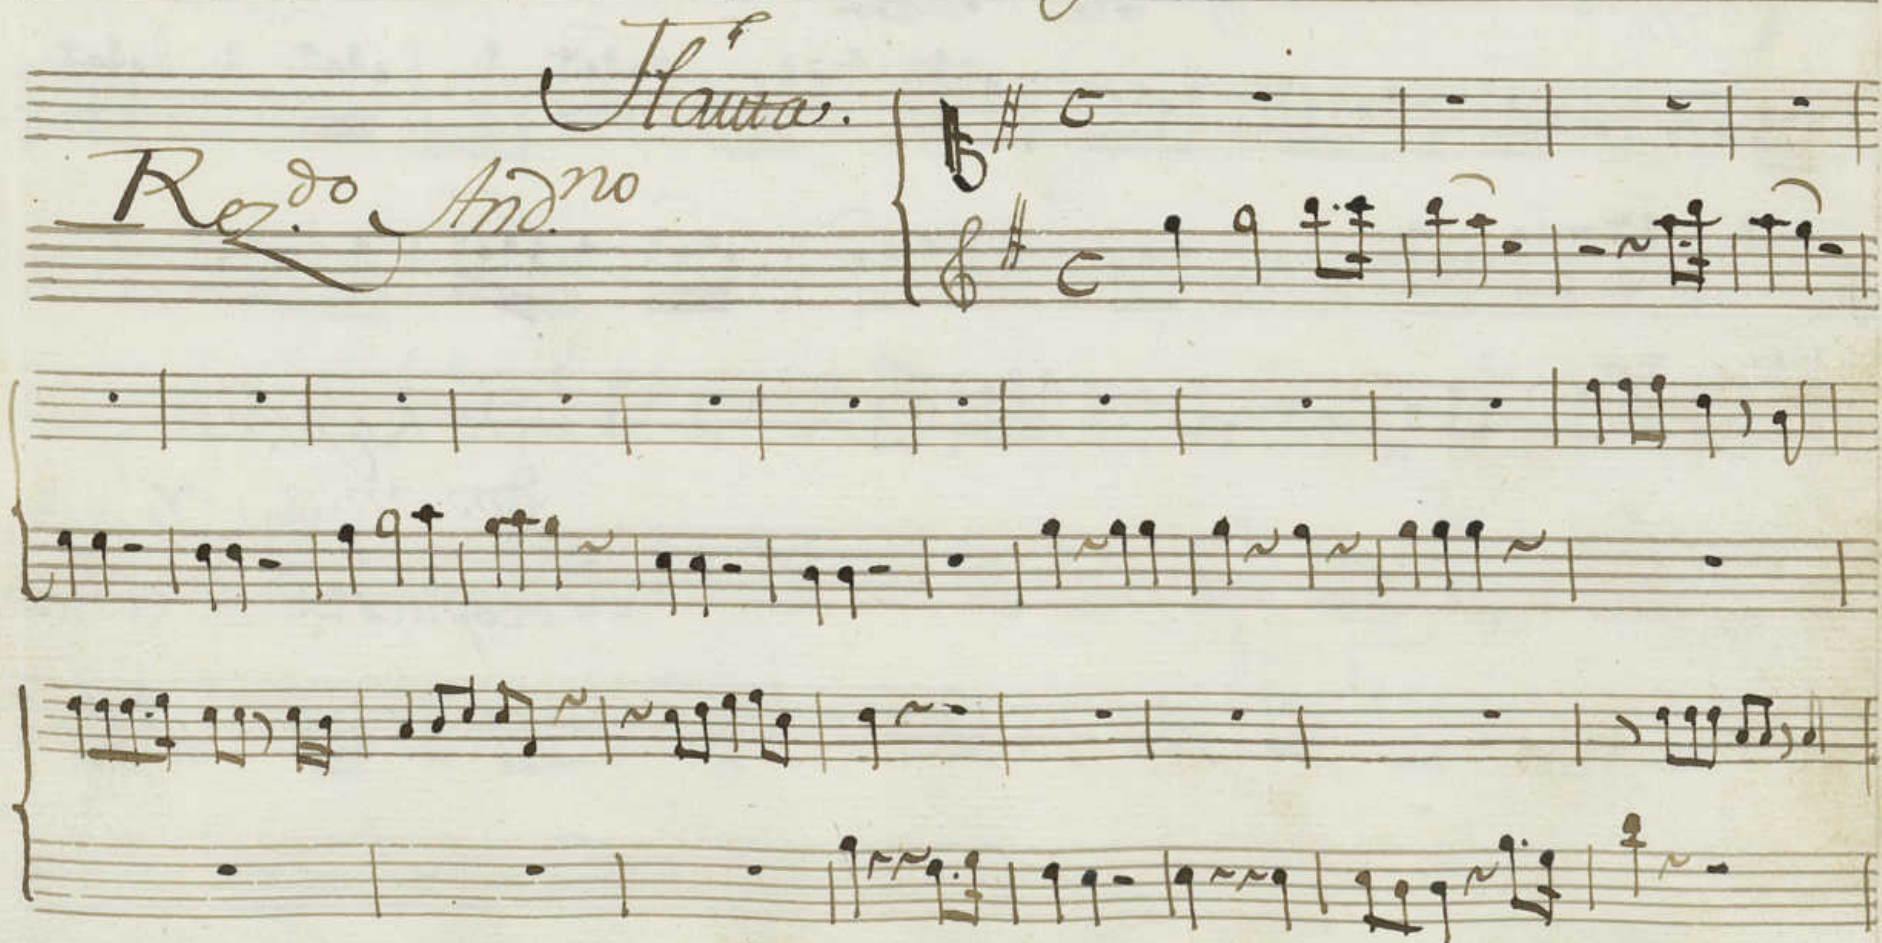 Flauta.
Rez.do And.no